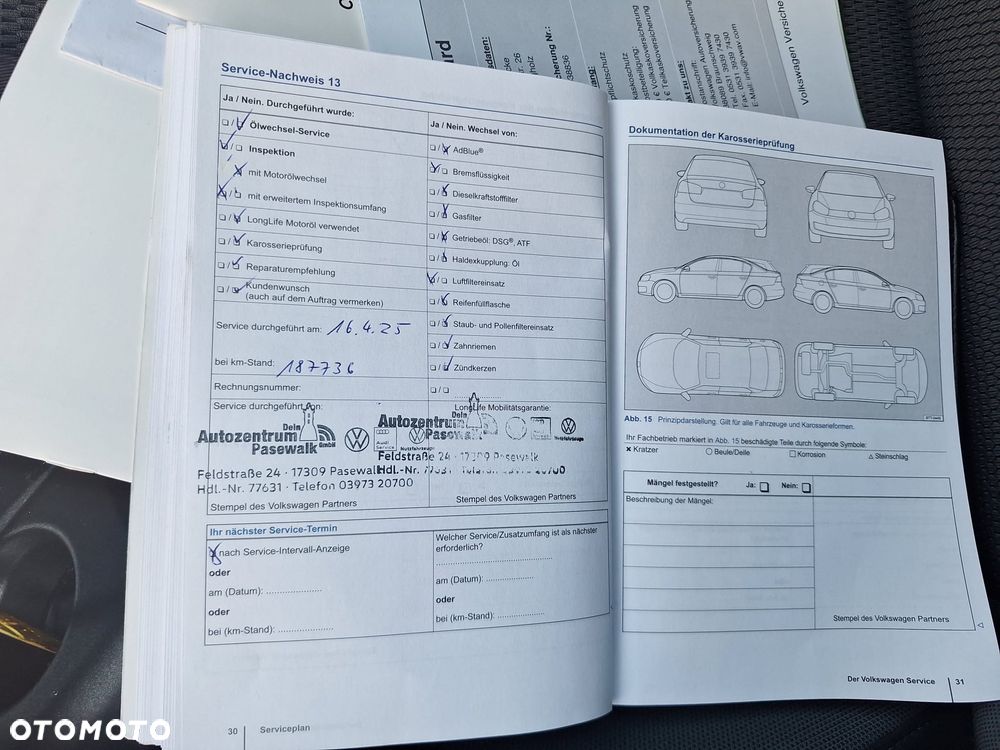 Service-Nachweis 13
Ja / Nein. Durchgeführt wurde:
Ölwechsel-Service
Inspektion
mit Motorölwechsel
mit erweitertem Inspektionsumfang
LongLife Motoröl verwendet
Karosserieprüfung
Reparaturempfehlung
Kundenwunsch
(auch auf dem Auftrag vermerken)
Service durchgeführt am: 16.4.25
bei km-Stand: 187736
Rechnungsnummer:
Service durchgeführt von:
Dein
Autozentrum
Pasewalk GmbH
Feldstraße 24 · 17309 Pasewalk
Hdl.-Nr. 77631 · Telefon 03973 20700
Stempel des Volkswagen Partners
Ja / Nein. Wechsel von:
AdBlue®
Bremsflüssigkeit
Dieselkraftstofffilter
Gasfilter
Getriebeöl: DSG®, ATF
Haldexkupplung: Öl
Luftfiltereinsatz
Reifenfüllflasche
Staub- und Pollenfiltereinsatz
Zahnriemen
Zündkerzen
LongLife Mobilitätsgarantie:
Dein
Autozentrum
Pasewalk
Nutzfahrzeuge
Feldstraße 24 · 17309 Pasewalk
Hdl.-Nr. 77631 · Telefon 03973 20700
Stempel des Volkswagen Partners
Ihr nächster Service-Termin
nach Service-Intervall-Anzeige
oder
am (Datum):
oder
bei (km-Stand):
Welcher Service/Zusatzumfang ist als nächster
erforderlich?
am (Datum):
oder
bei (km-Stand):
30 Serviceplan
Dokumentation der Karosserieprüfung
Abb. 15 Prinzipdarstellung. Gilt für alle Fahrzeuge und Karosserieformen.
Ihr Fachbetrieb markiert in Abb. 15 beschädigte Teile durch folgende Symbole:
Kratzer
Beule/Delle
Korrosion
Steinschlag
Mängel festgestellt? Ja: Nein:
Beschreibung der Mängel:
Stempel des Volkswagen Partners
Der Volkswagen Service 31
Volkswagen Autoversicherung
38089 Braunschweig
Tel. 0531 3939 7430
Fax. 0531 3939 7430
Volkswagen Versiche
OTOMOTO